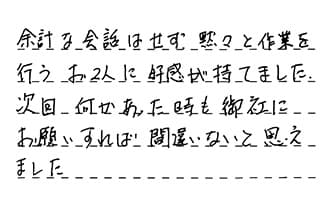 余計な会話はせず 黙々と作業を
行う お2人に 好感が持てました.
次回 何かあった時も 御社に
お願いすれば 間違いないと 思え
ました